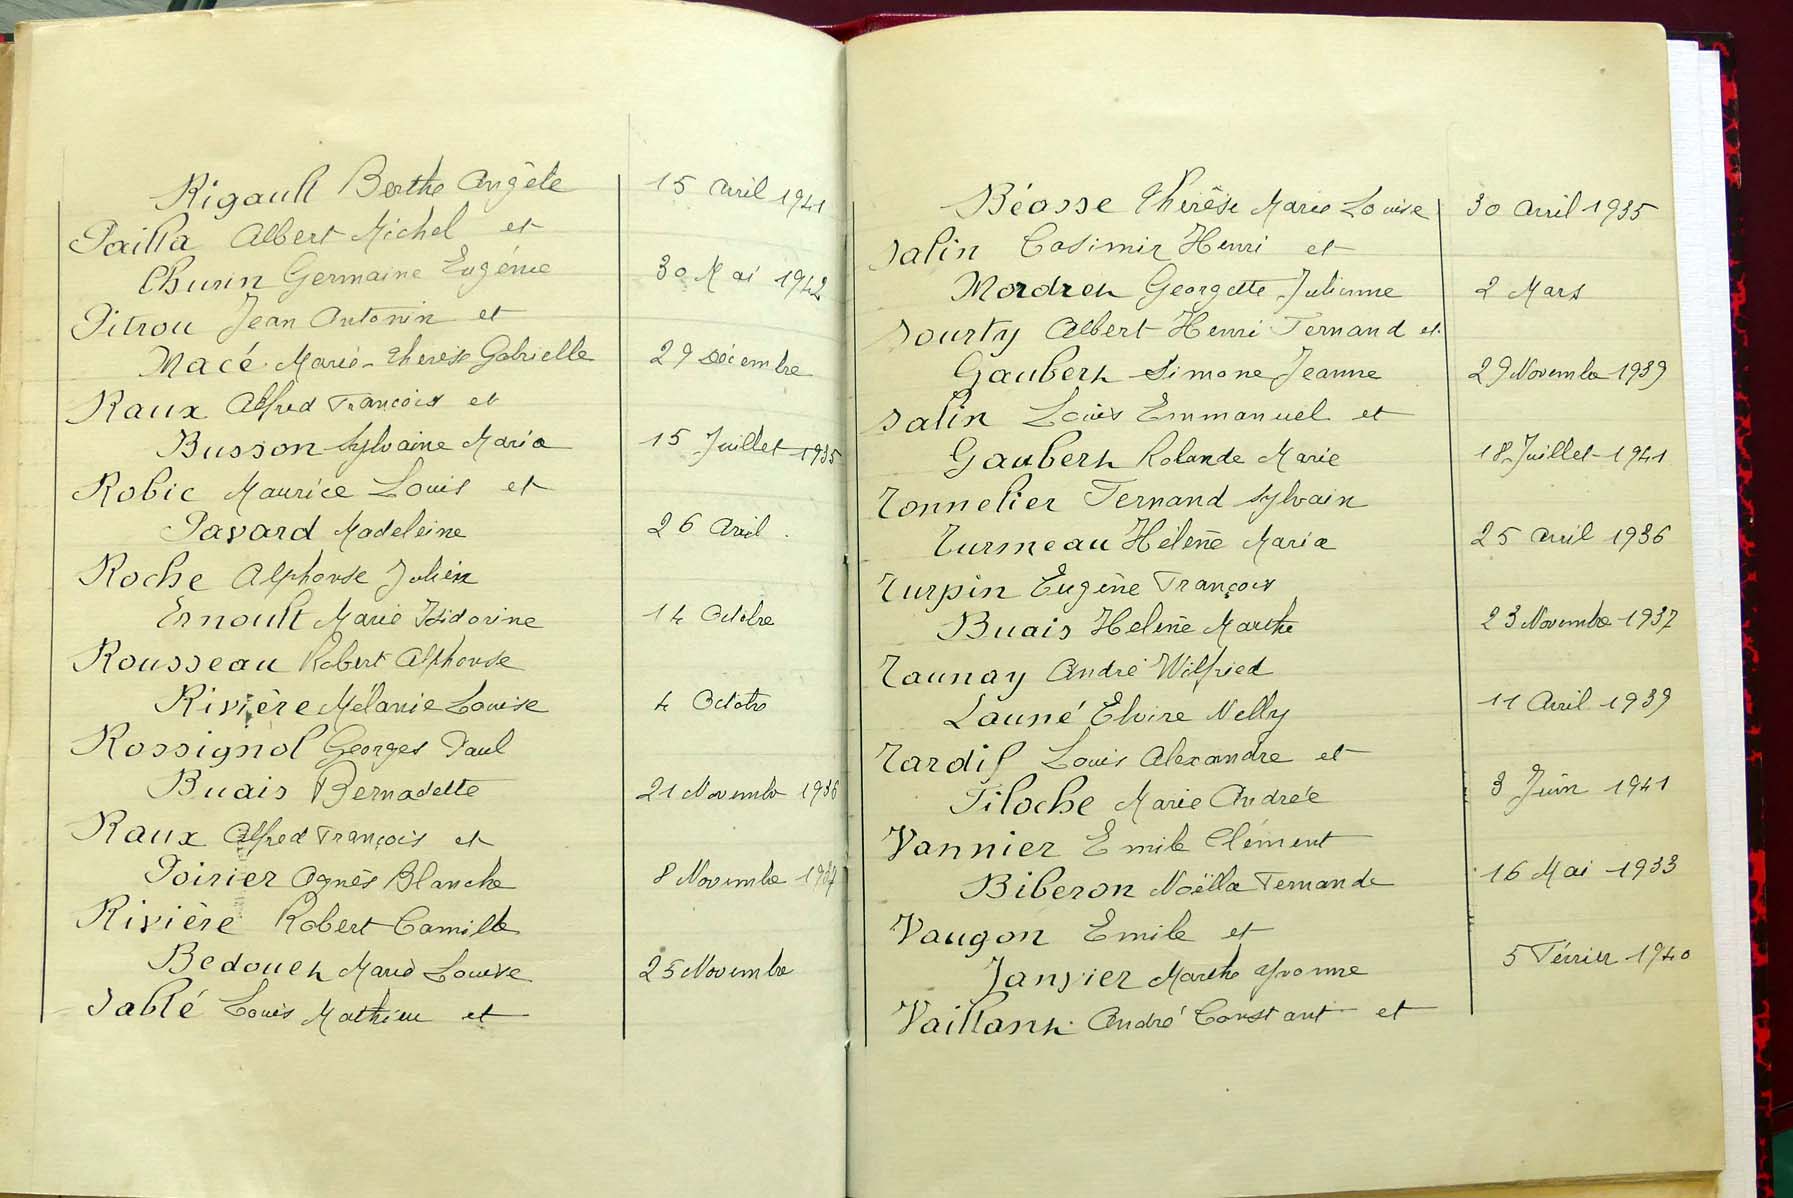 Rigault Berthe Angèle 15 Avril 1941
Pailla Albert Michel et
Churin Germaine Eugénie 30 Mai 1942
Pitrou Jean Antonin et
Macé Marie-Thérèse Gabrielle 29 Décembre
Raux Alfred François et
Busson Sylvaine Maria 15 Juillet 1935
Robic Maurice Louis et
Pavard Madeleine 26 Avril
Roche Alphonse Julien
Ernoult Marie Isidorine 14 Octobre
Rousseau Robert Alphonse
Rivière Mélanie Louise 4 Octobre
Rossignol Georges Paul
Buais Bernadette 21 Novembre 1936
Raux Alfred François et
Poirier Agnès Blanche 8 Novembre 1937
Rivière Robert Camille
Bedouet Marie Louise 25 Novembre
Sablé Louis Mathieu et
Béasse Thérèse Marie Louise 30 Avril 1935
Salin Casimir Henri et
Mordret Georgette Julienne 2 Mars
Sourty Albert Henri Fernand et
Gaubert Simone Jeanne 29 Novembre 1939
Salin Louis Emmanuel et
Gaubert Rolande Marie 18 Juillet 1941
Tonnelier Fernand Sylvain
Turmeau Hélène Maria 25 Avril 1936
Turpin Eugène François
Buais Helène Marthe 23 Novembre 1937
Taunay André Wilfried
Launé Elvire Nelly 11 Avril 1939
Tardif Louis Alexandre et
Filoche Marie Andrée 3 Juin 1941
Vannier Emile Clément
Biberon Noëlla Fernande 16 Mai 1933
Vaugon Emile et
Janvier Marthe Yvonne 5 Février 1940
Vaillant André Constant et